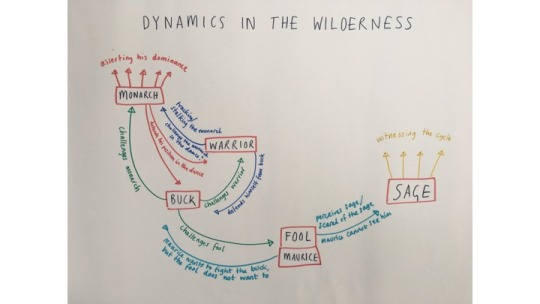 DYNAMICS IN THE WILDERNESS
asserting his dominance
MONARCH
tracking/
stalking the monarch
challenges the monarch
in the dance?
defends his position in the dance
WARRIOR
challenges monarch
challenges warrior
defends himself from buck
BUCK
challenges fool
maurice wants to fight the buck,
but the fool does not want to
FOOL
MAURICE
perceives sage/
scared of the sage
maurice cannot see him
witnessing the cycle
SAGE